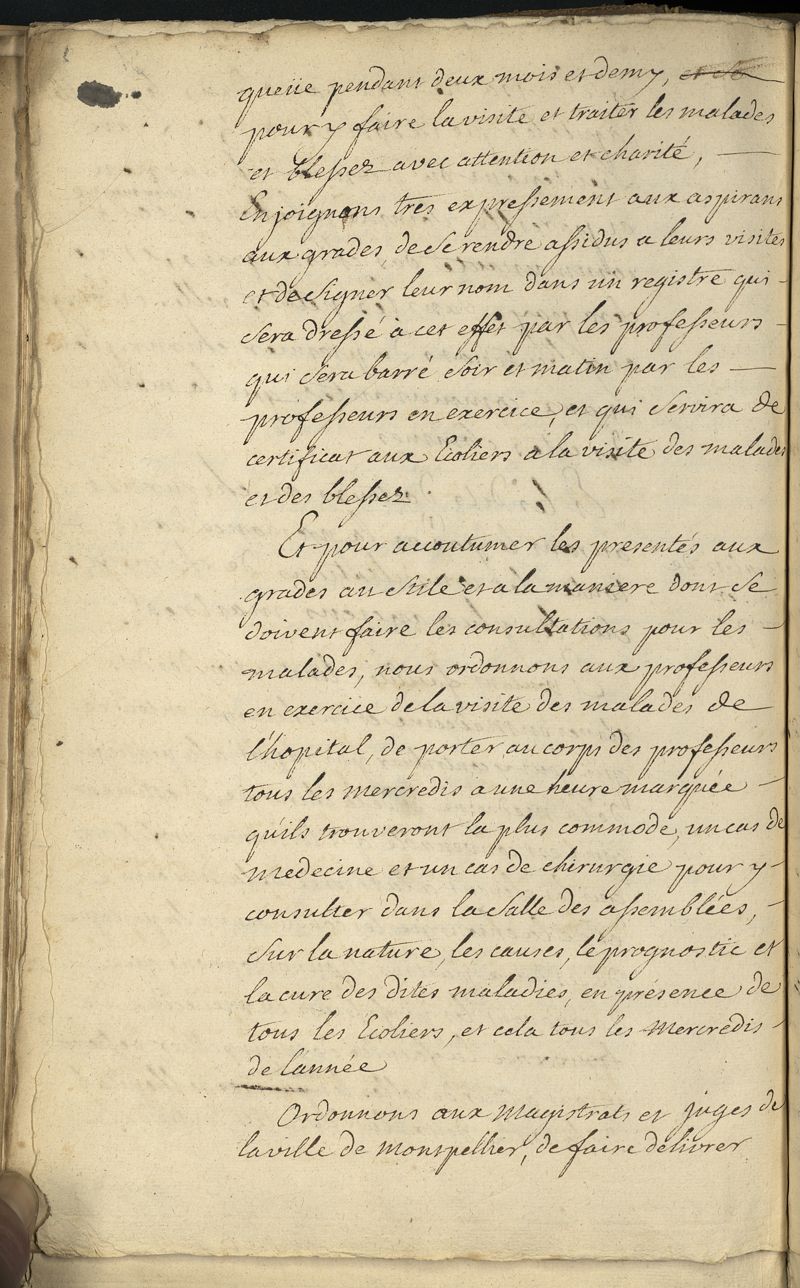 queüe pendant deux mois et demy, et se
pour y faire la visite et traiter les malades
et blessez avec attention et charité,
Enjoignons tres expressement aux aspirans
aux grades, de se rendre assidus a leurs visites
et de signer leur nom dans un registre qui
sera dressé à cet effet par les professeurs
qui sera barré soir et matin par les
professeurs en exercice, et qui servira de
certificat aux Ecoliers a la visite des malades
et des blessez.
Et pour accoutumer les presentés aux
grades au stile et a la maniere dont se
doivent faire les consultations pour les
malades, nous ordonnons aux professeurs
en exercice de la visite des malades de
l'hopital, de porter au corps des professeurs
tous les mercredis a une heure marquée
qu'ils trouveront la plus commode, un cas de
medecine et un cas de chirurgie pour y
consulter dans la salle des assemblées,
sur la nature, les causes, le prognostic et
la cure des dites maladies, en presence de
tous les Ecoliers, et cela tous les mercredis
de l'année
Ordonnons aux magistrats et juges de
la ville de montpellier, de faire delivrer